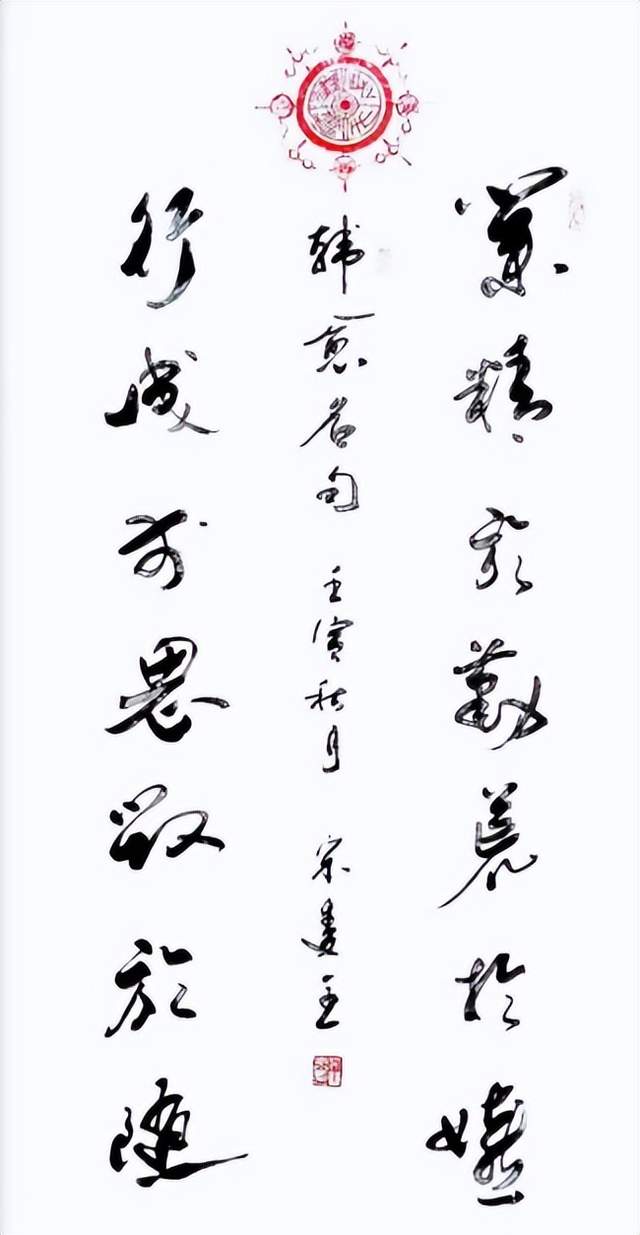 業精於勤荒於嬉
行成於思毀於隨
韓愈名句 壬寅秋月